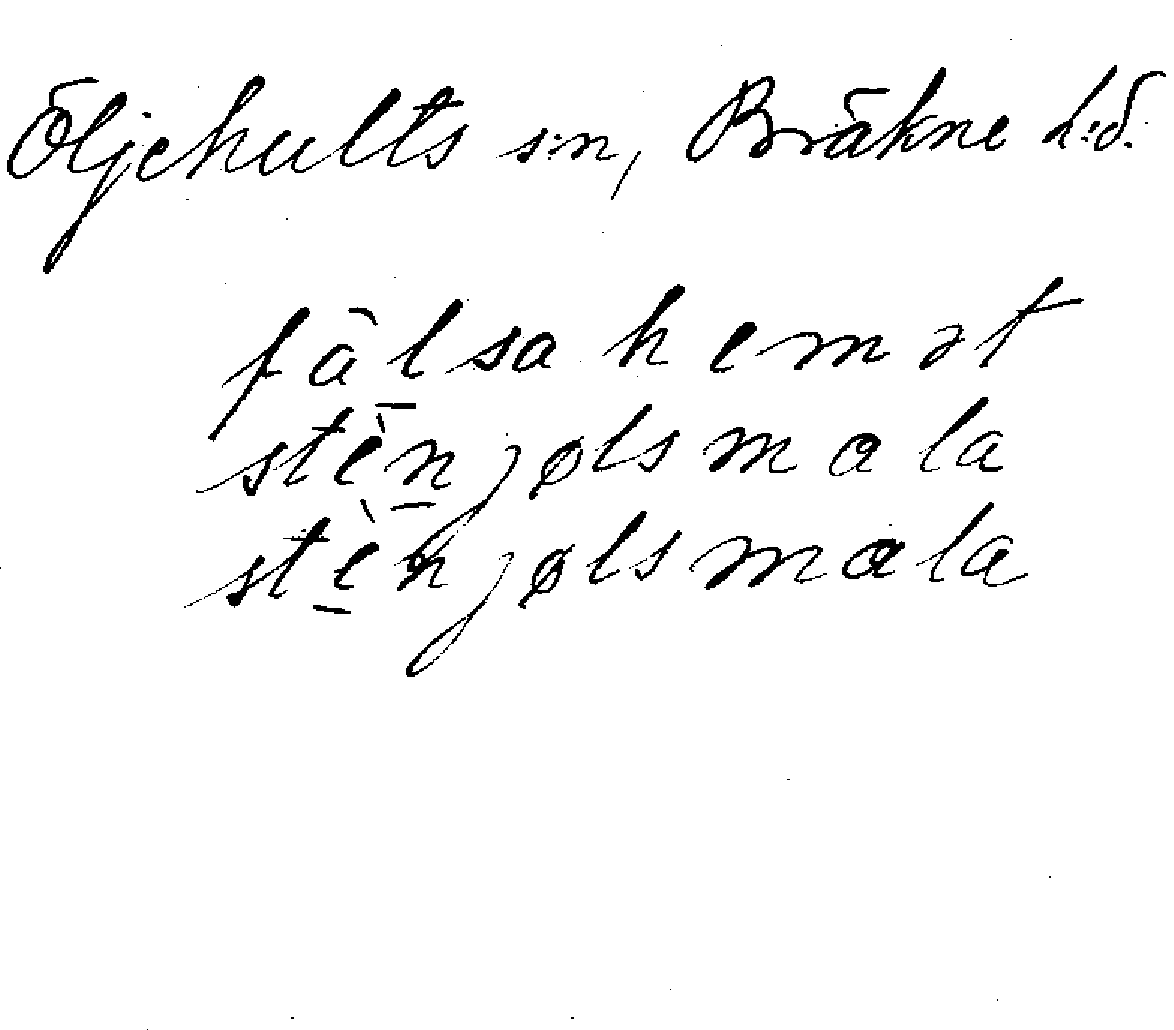 Öljehults s:n, Bräkne h:d.
fâlsa hemət
stènjølsmala
stènjølsmala